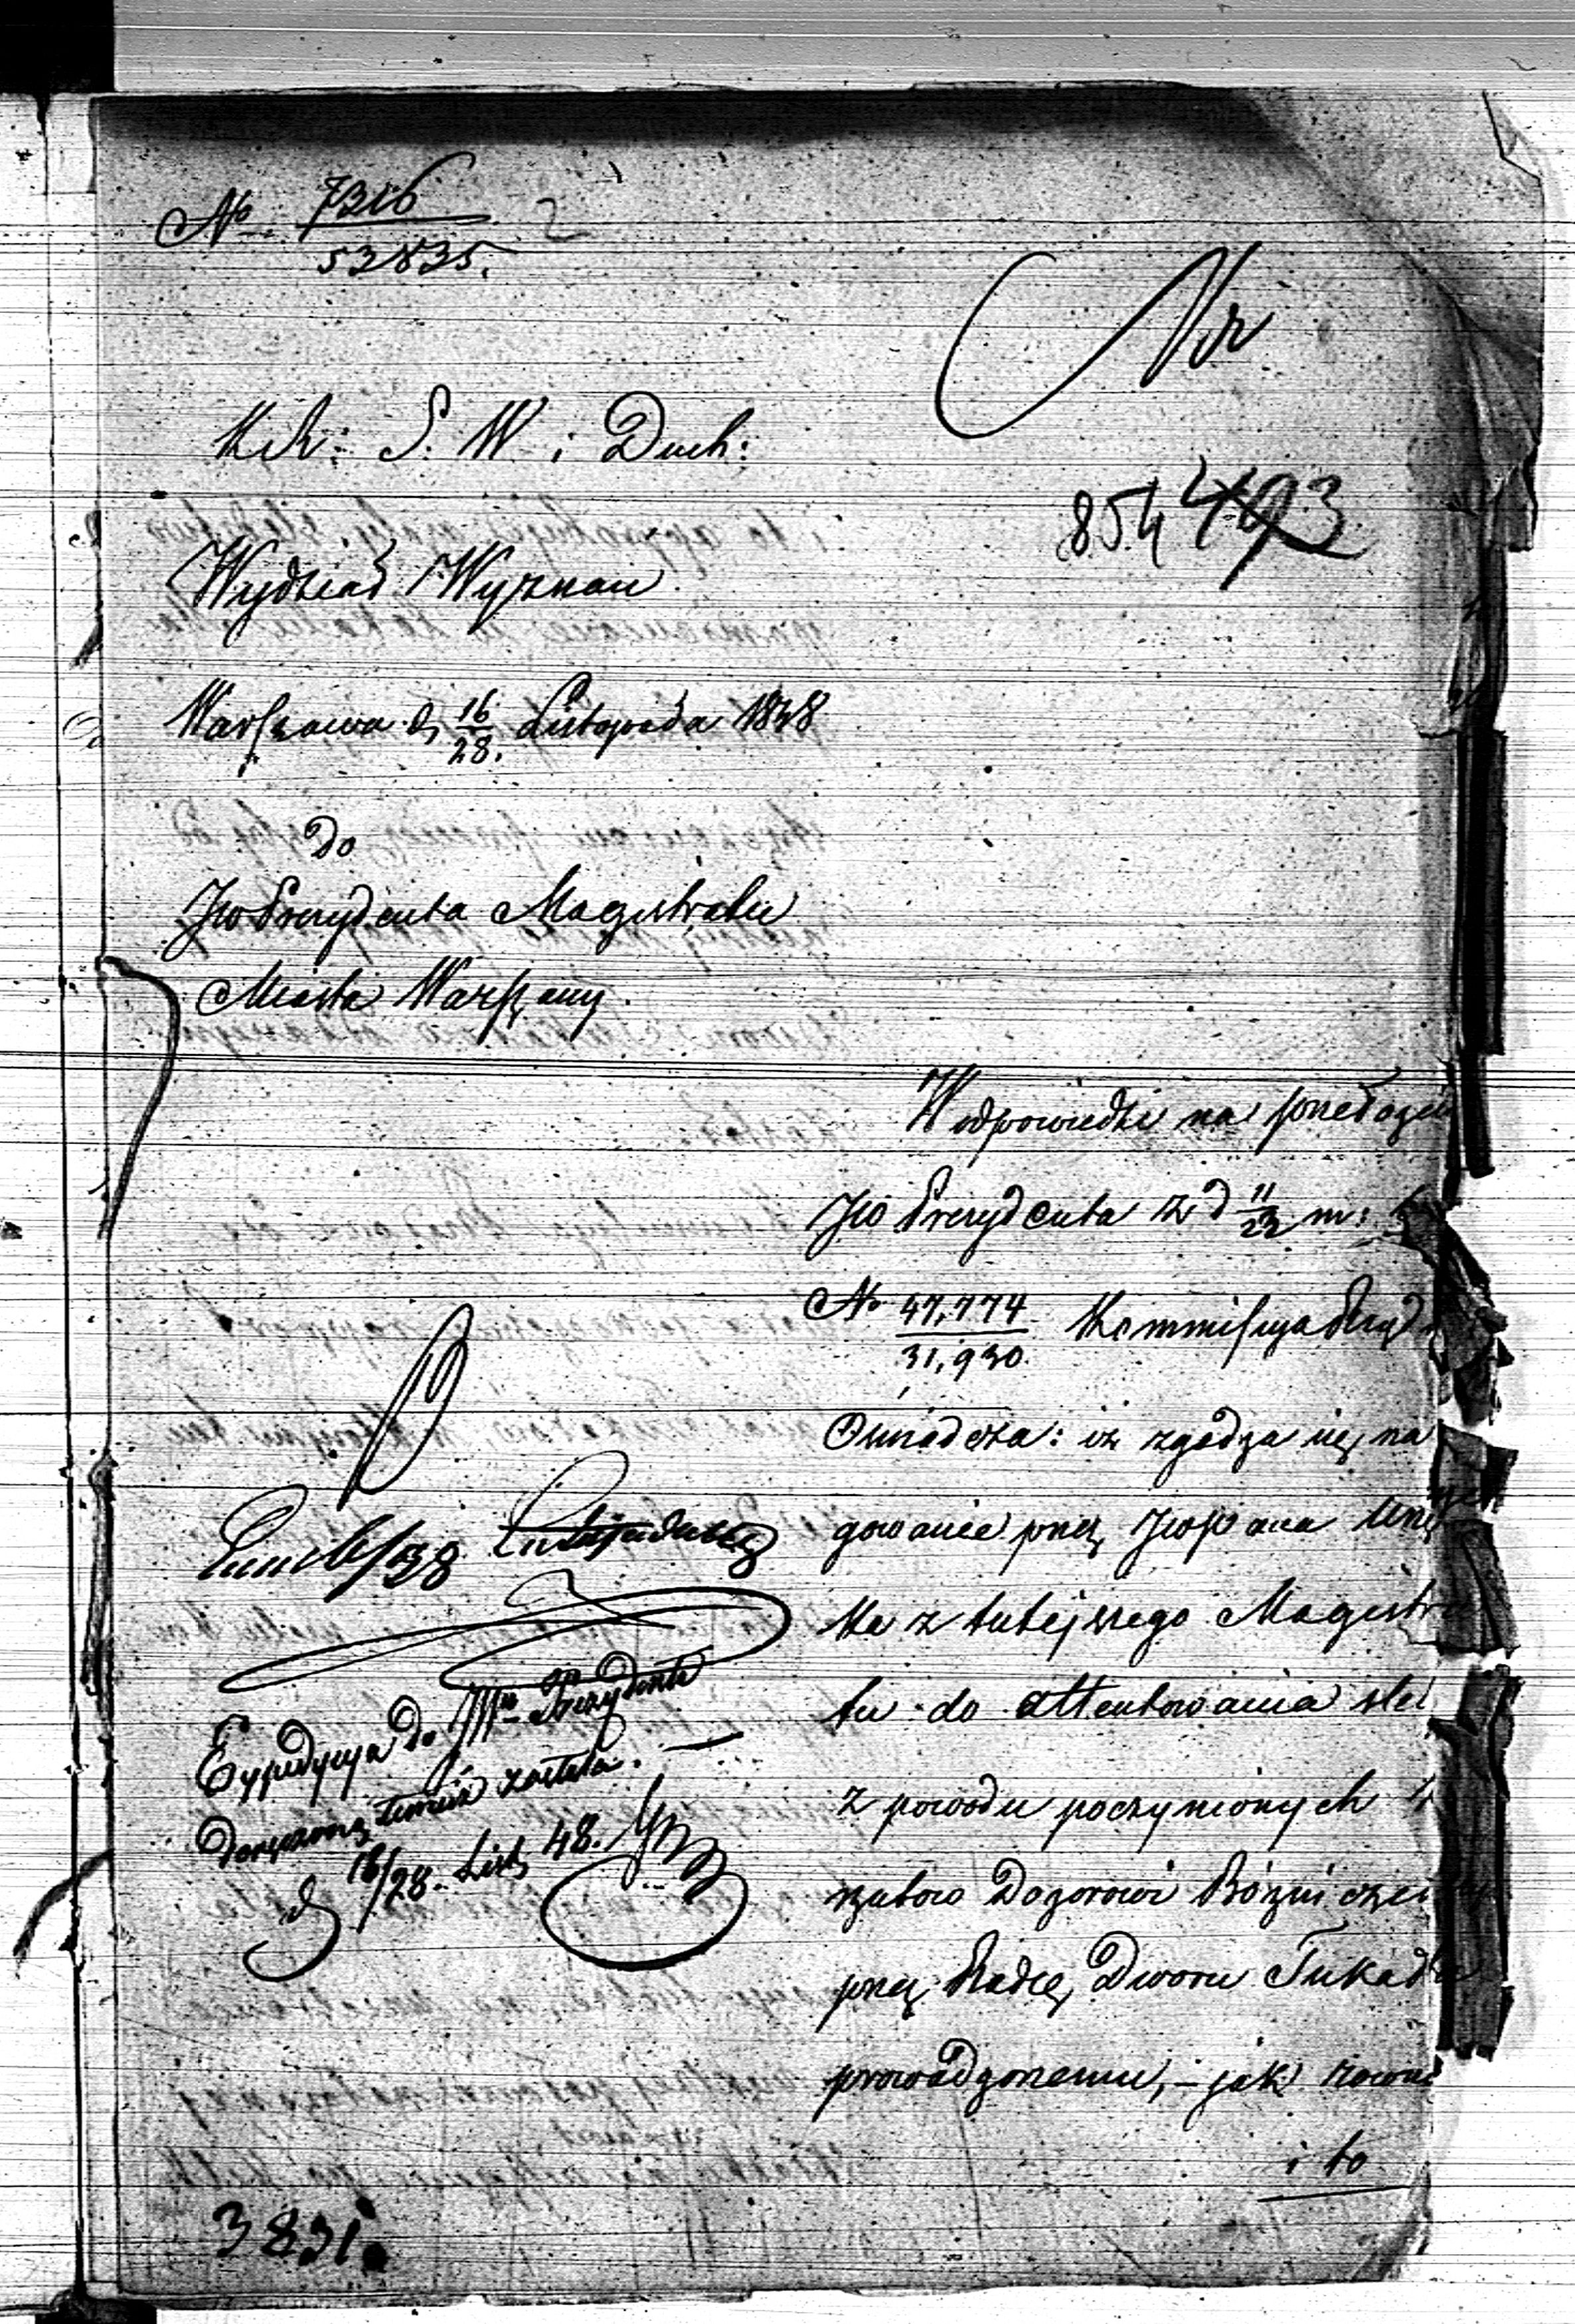 No 7316
53835.
2
Nr
K.R: S. W. i Duch:
854 493
Wydział Wyznań
Warszawa d 16/28. Listopada 1848
do
JW Prezydenta Magistratu
Miasta Warszawy.
W odpowiedzi na przedłoże
JW Prezydenta z d 11/23 m:
No 47,774
31,930. Kommissya Rząd
Oświadcza: iż zgadza się na
gowanie przez JWPana Urzę
ka z tutejszego Magistra
tu do attentowania śled
z powodu poczynionych
rzutów Dozorowi Bóżniczem
przez Radcę Dworu Tukad
prowadzonemu, – jak równi
i to
Expedycya do JW Prezydenta
doręczoną temuż została. —
d 16/28. List. 48.
3831.